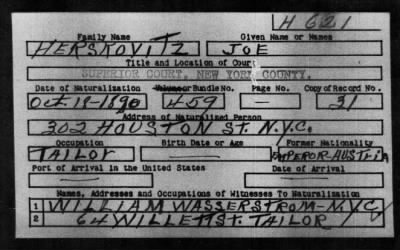 H 621
Family Name Given Name or Names
HERSKOVITZ JOE
Title and Location of Court
SUPERIOR COURT, NEW YORK COUNTY.
Date of Naturalization Volume or Bundle No. Page No. Copy of Record No.
Oct-18-1890 459 — 31
Address of Naturalized Person
302 HOUSTON ST. N.Y.C.
Occupation Birth Date or Age Former Nationality
TAILOR — EMPEROR-AUSTRIA
Port of Arrival in the United States Date of Arrival
— —
Names, Addresses and Occupations of Witnesses To Naturalization
1 WILLIAM WASSERSTROM-N.Y.C,
2 64 WILLETT ST. TAILOR